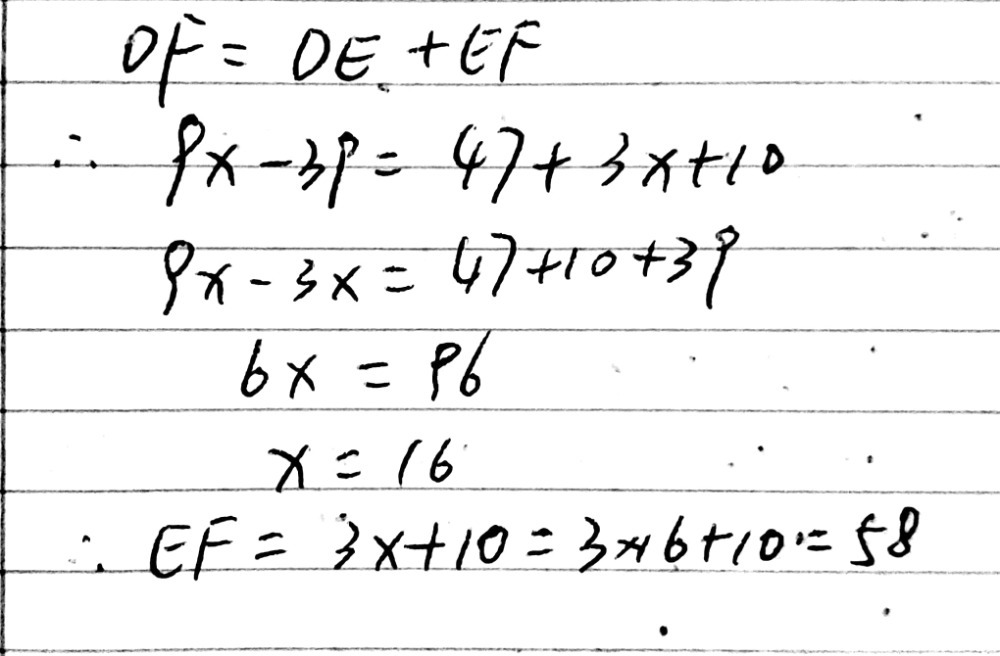 DF = DE + EF
∴ 9x - 39 = 47 + 3x + 10
9x - 3x = 47 + 10 + 39
6x = 96
x = 16
∴ EF = 3x + 10 = 3×16 + 10 = 58